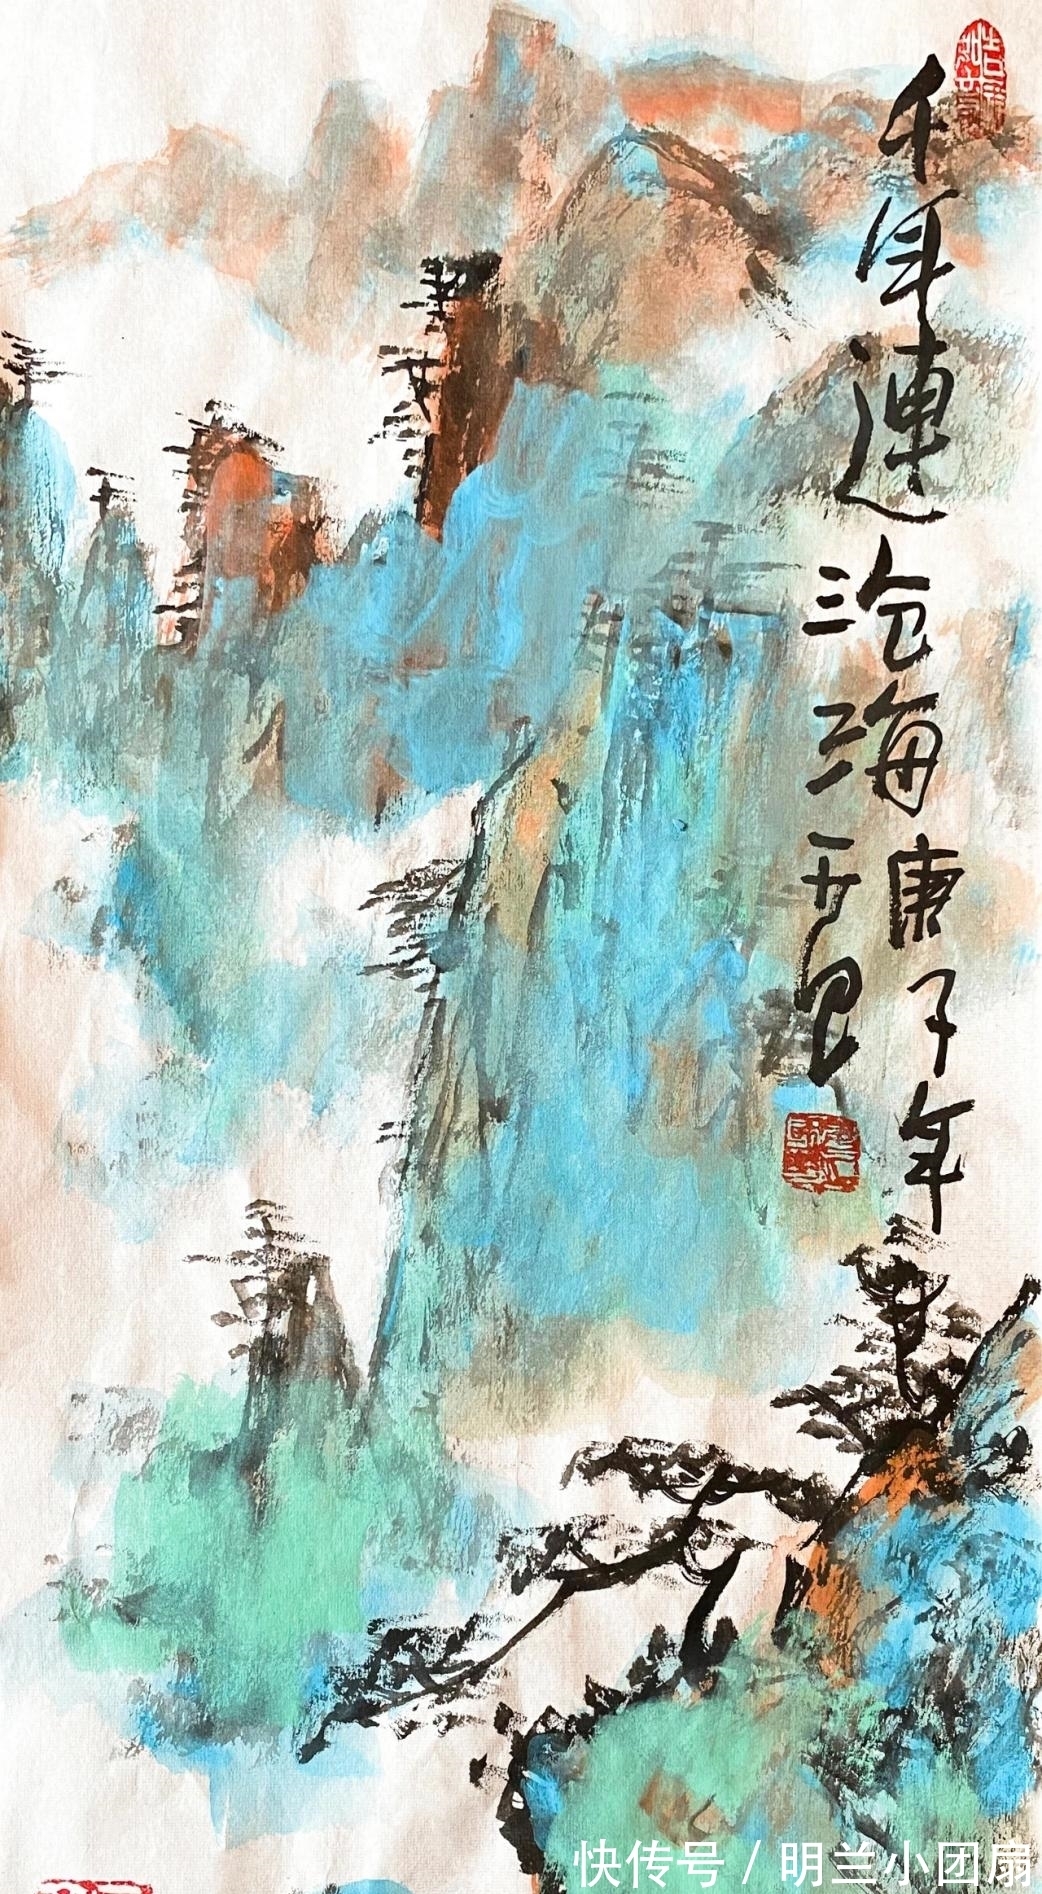 千年連沧海庚子年
快传号/明兰小团扇